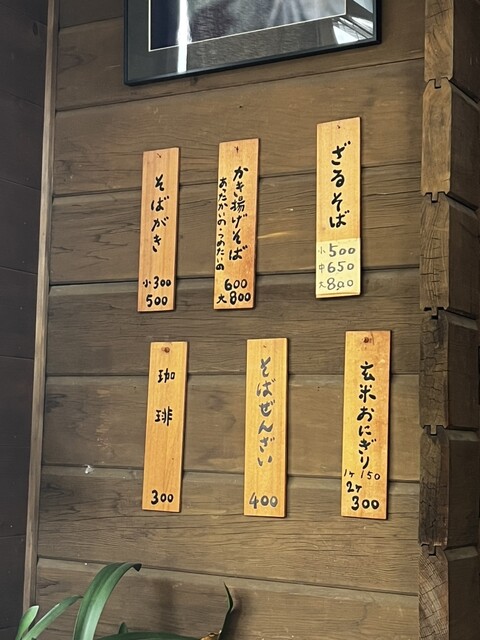 ざるそば
小500
中650
大800
かき揚げそば
あたたかいの・つめたいの
600
大800
そばがき
小300
500
玄米おにぎり
1ケ150
2ケ
300
そばぜんざい
400
珈琲
300